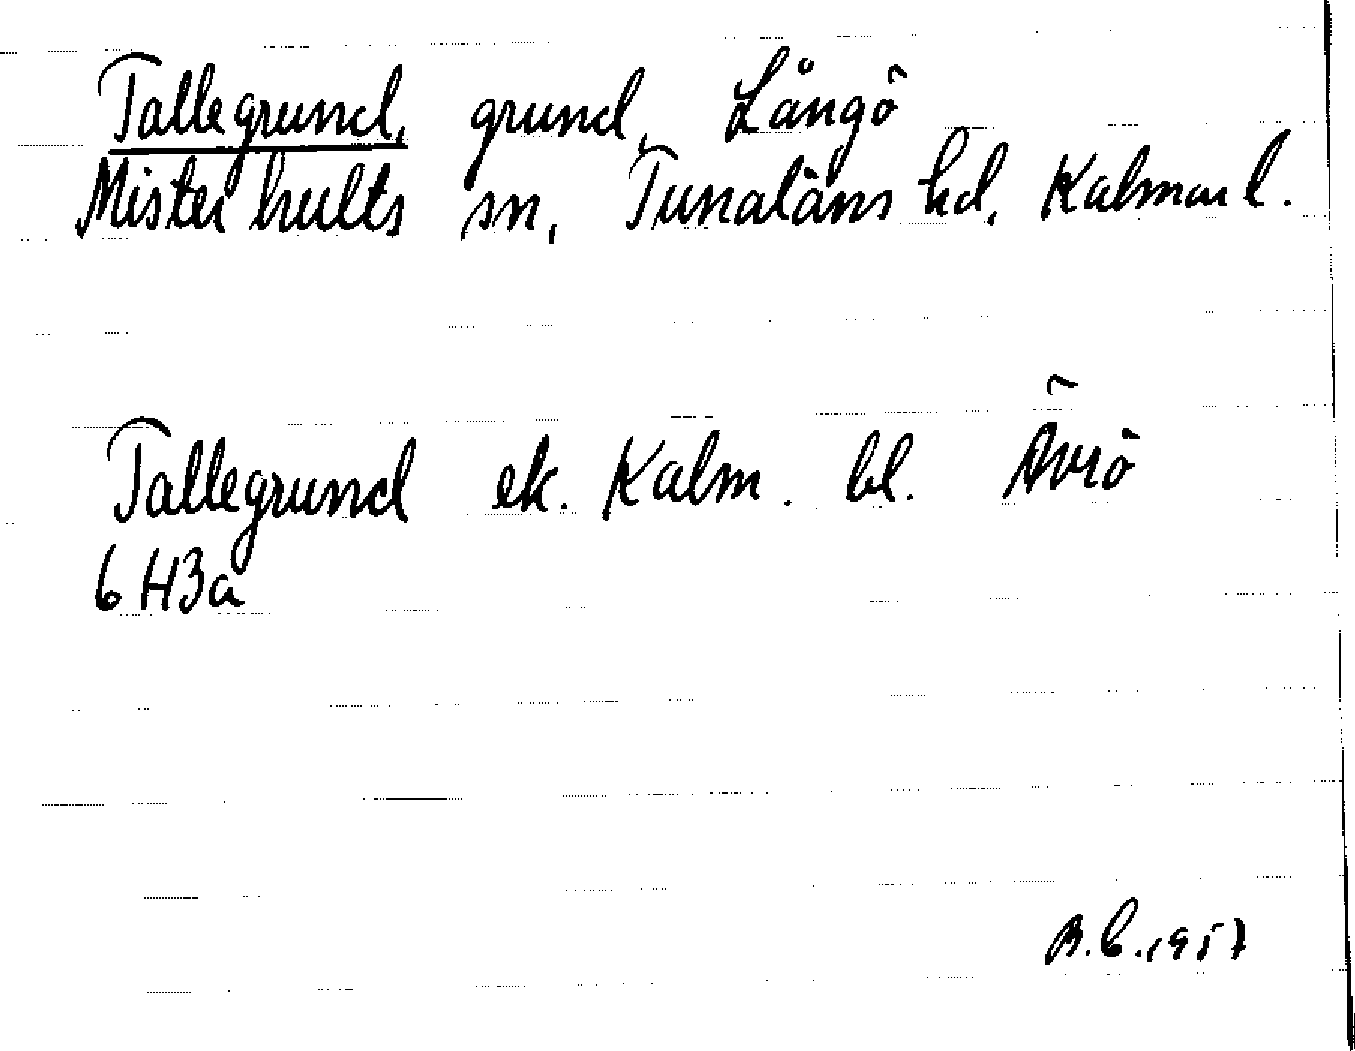 Tallegrund, grund, Långö
Misterhults sn, Tunaläns hd, Kalmar l.
Tallegrund ek. Kalm. bl. Ävrö
6 H3a
B.C. 1957